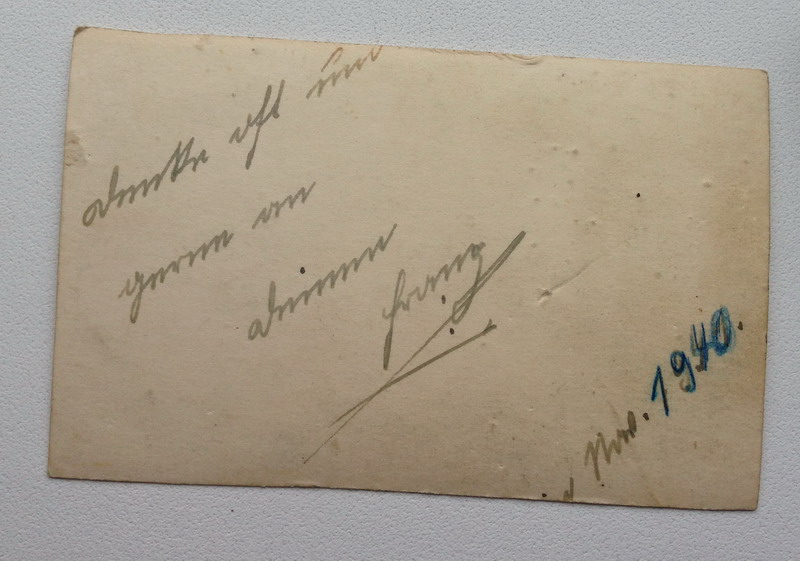 Denke oft und
gerne an
Deinen
Franz
Nov. 1940.